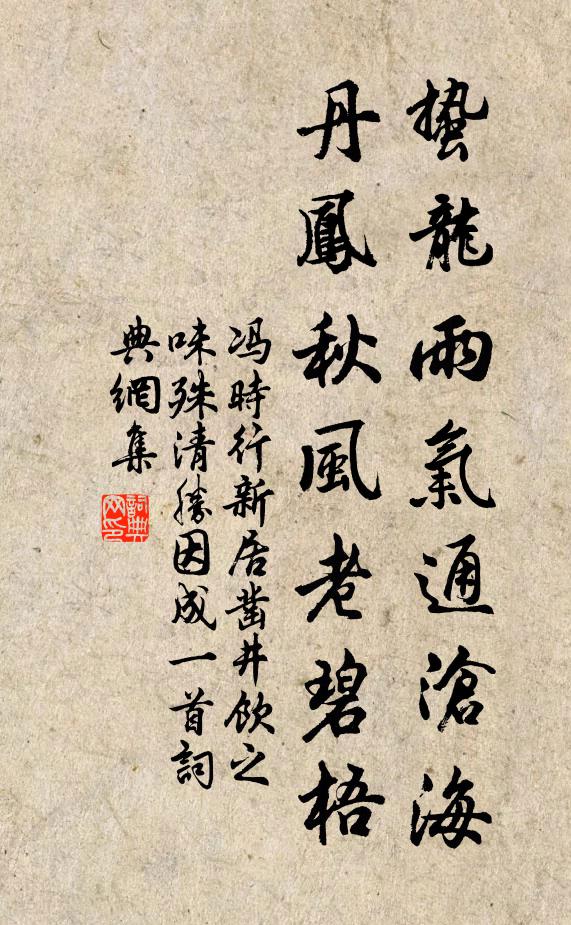 蟄龍雨氣通滄海
丹鳳秋風老碧梧
冯時行新居凿井飲之
味殊清勝因成一首詞
典網集
詞典
网印